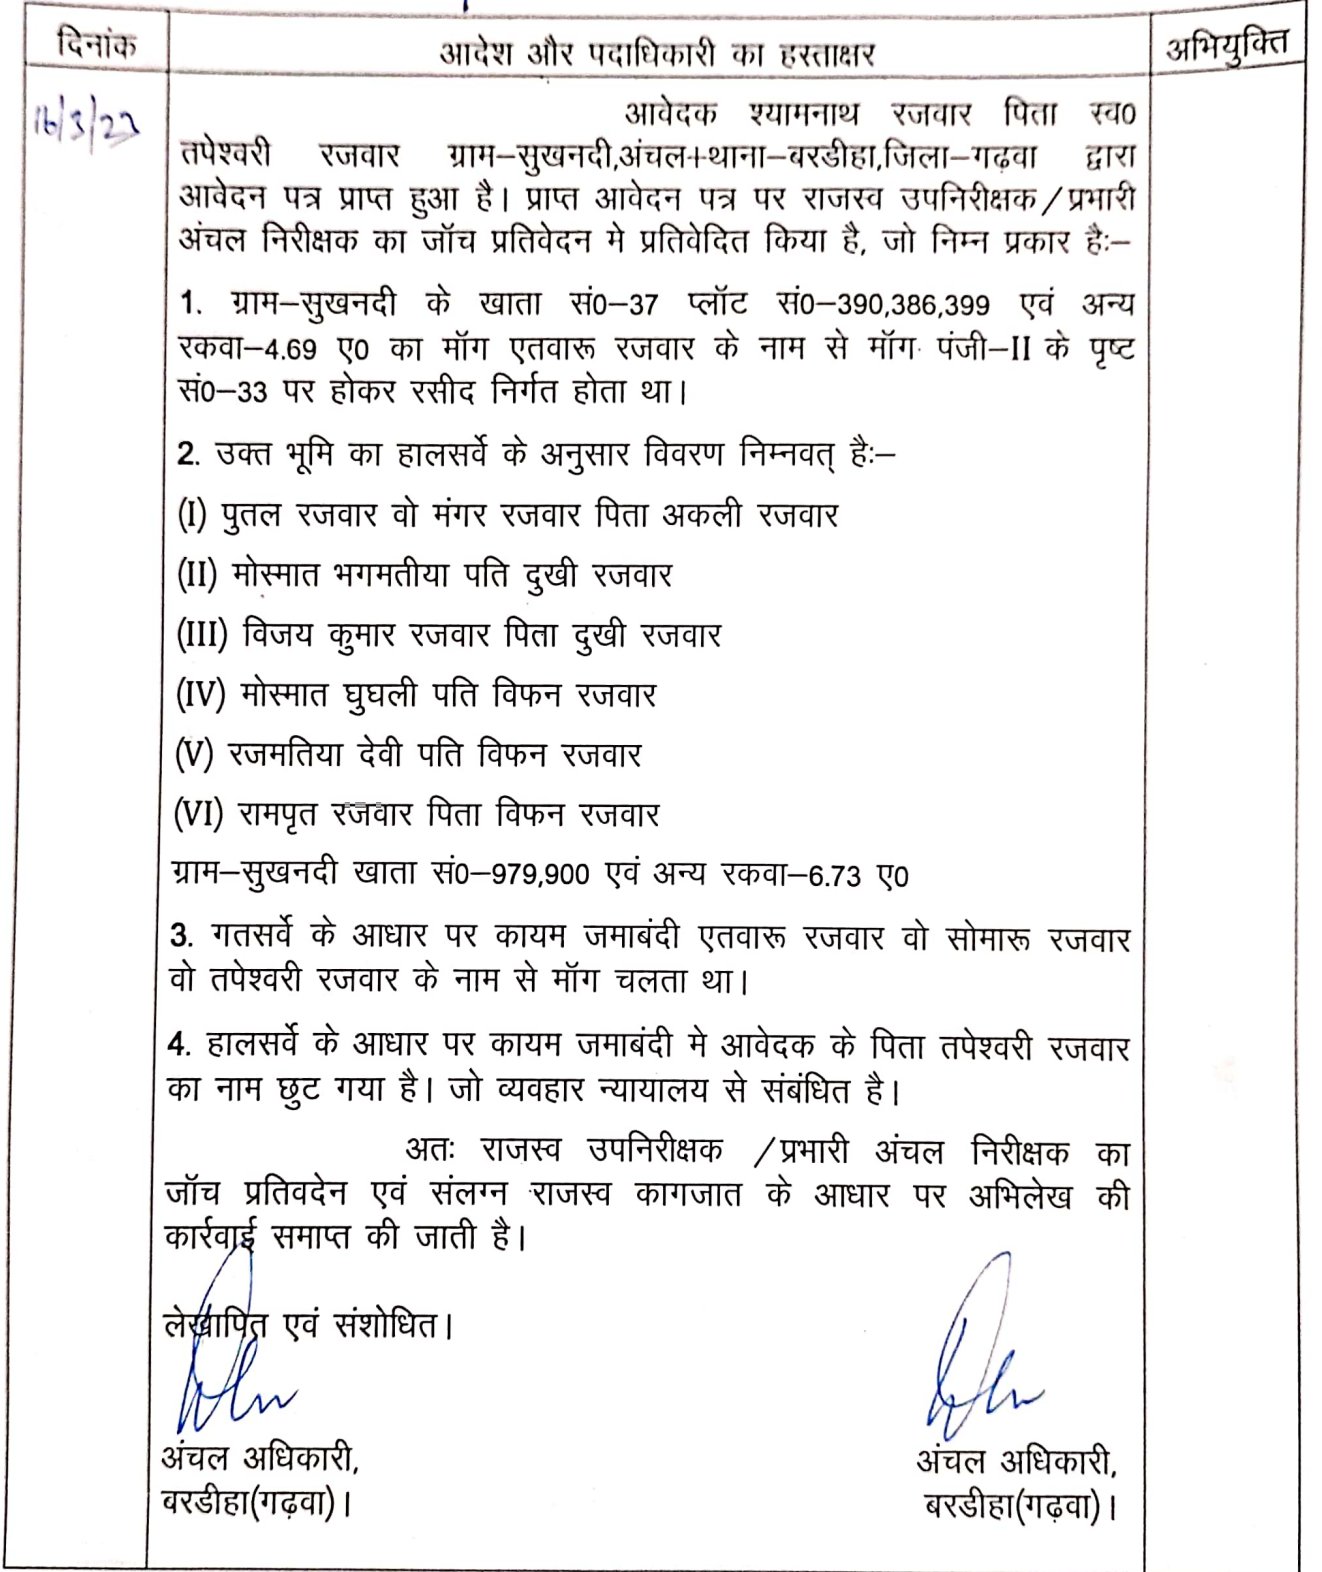 दिनांक
आदेश और पदाधिकारी का हस्ताक्षर
अभियुक्ति
16/3/23
आवेदक श्यामनाथ रजवार पिता स्व0
तपेश्वरी रजवार ग्राम–सुखनदी,अंचल+थाना–बरडीहा,जिला–गढ़वा द्वारा
आवेदन पत्र प्राप्त हुआ है। प्राप्त आवेदन पत्र पर राजस्व उपनिरीक्षक/प्रभारी
अंचल निरीक्षक का जॉच प्रतिवेदन मे प्रतिवेदित किया है, जो निम्न प्रकार हैः–
1. ग्राम–सुखनदी के खाता सं0–37 प्लॉट सं0–390,386,399 एवं अन्य
रकवा–4.69 ए0 का मॉग एतवारू रजवार के नाम से मॉग पंजी–II के पृष्ट
सं0–33 पर होकर रसीद निर्गत होता था।
2. उक्त भूमि का हालसर्वे के अनुसार विवरण निम्नवत् हैः–
(I) पुतल रजवार वो मंगर रजवार पिता अकली रजवार
(II) मोस्मात भगमतीया पति दुखी रजवार
(III) विजय कुमार रजवार पिता दुखी रजवार
(IV) मोस्मात घुघली पति विफन रजवार
(V) रजमतिया देवी पति विफन रजवार
(VI) रामपृत रजवार पिता विफन रजवार
ग्राम–सुखनदी खाता सं0–979,900 एवं अन्य रकवा–6.73 ए0
3. गतसर्वे के आधार पर कायम जमाबंदी एतवारू रजवार वो सोमारू रजवार
वो तपेश्वरी रजवार के नाम से मॉग चलता था।
4. हालसर्वे के आधार पर कायम जमाबंदी मे आवेदक के पिता तपेश्वरी रजवार
का नाम छुट गया है। जो व्यवहार न्यायालय से संबंधित है।
अतः राजस्व उपनिरीक्षक /प्रभारी अंचल निरीक्षक का
जॉच प्रतिवदेन एवं संलग्न राजस्व कागजात के आधार पर अभिलेख की
कार्रवाई समाप्त की जाती है।
लेखापित एवं संशोधित।
अंचल अधिकारी, अंचल अधिकारी,
बरडीहा(गढ़वा)। बरडीहा(गढ़वा)।